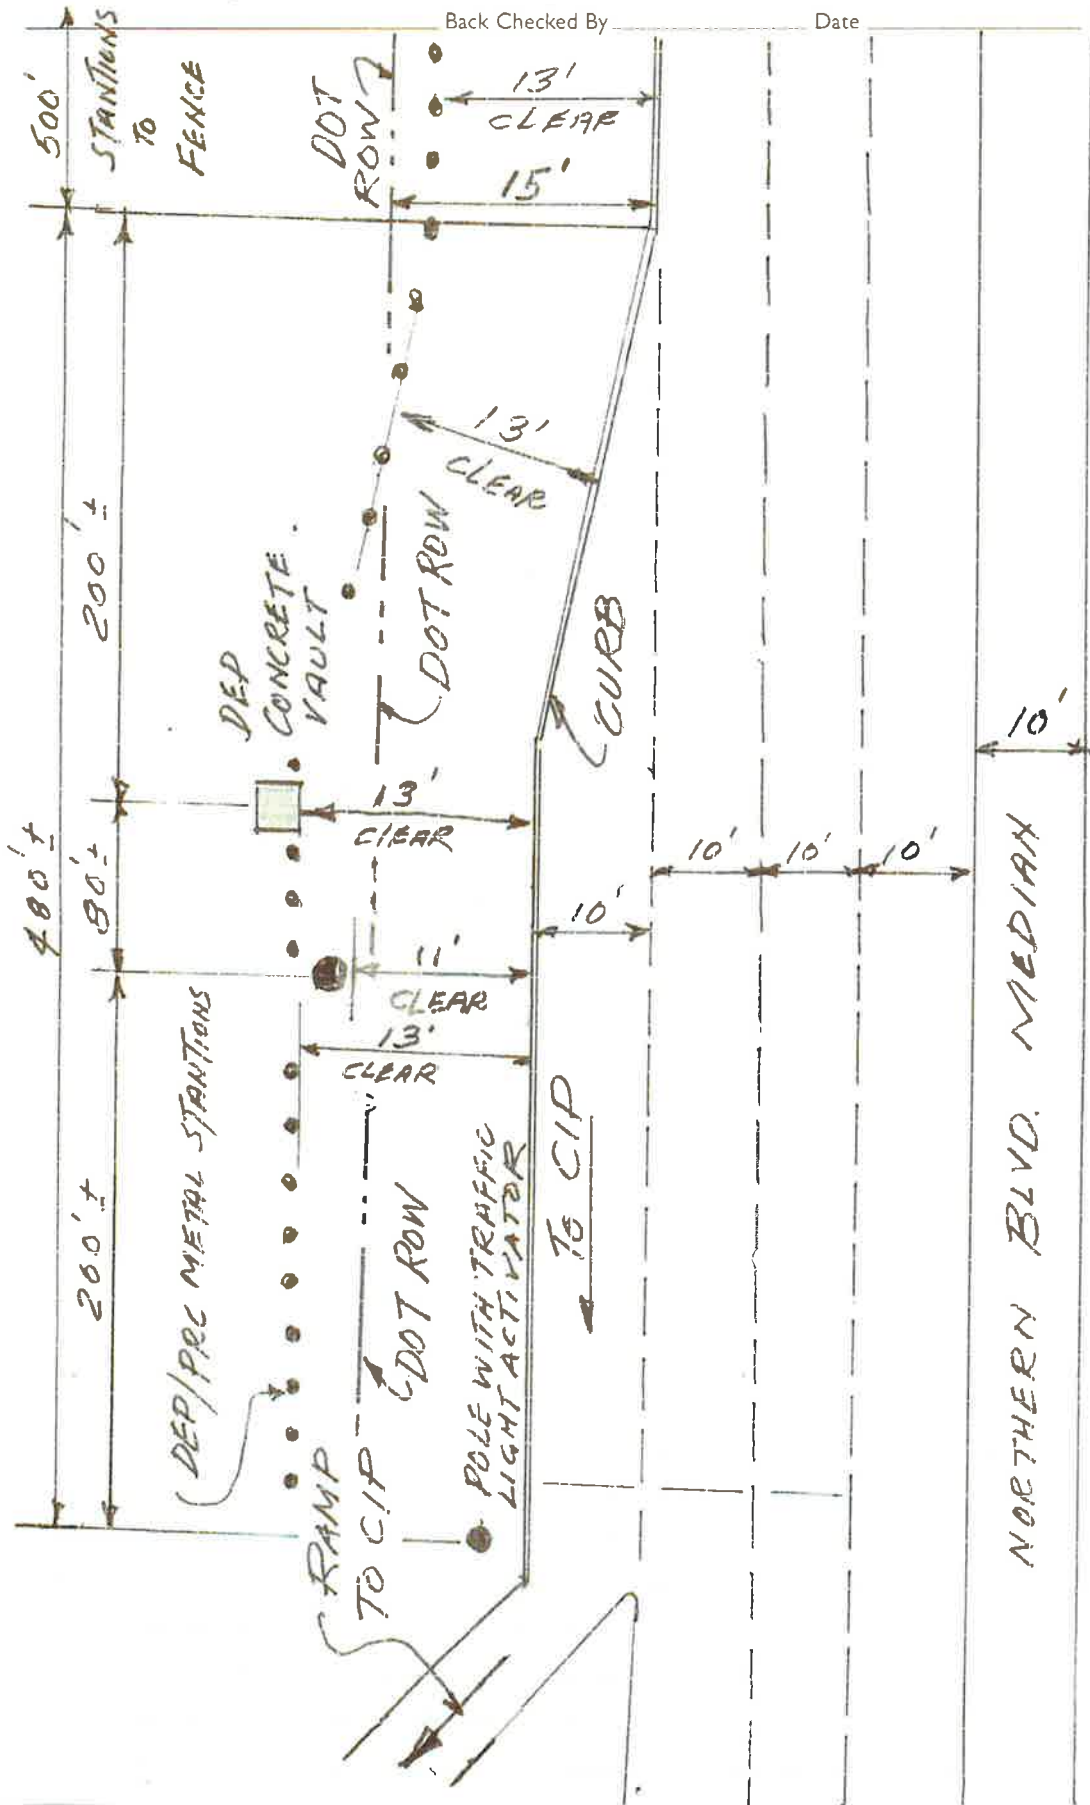 Back Checked By
Date
500'
STANTIONS
TO
FENCE
DOT
ROW
13'
CLEAR
15'
13'
CLEAR
200' ±
DEP
CONCRETE
VAULT
DOT ROW
CURB
10'
13'
CLEAR
480' ±
80' ±
10'
10'
10'
10'
11'
CLEAR
13'
CLEAR
DEP/PRC METAL STANTIONS
200' ±
DOT ROW
POLE WITH TRAFFIC
LIGHT ACTIVATOR
TO CIP
RAMP
TO CIP
NORTHERN BLVD. MEDIAN